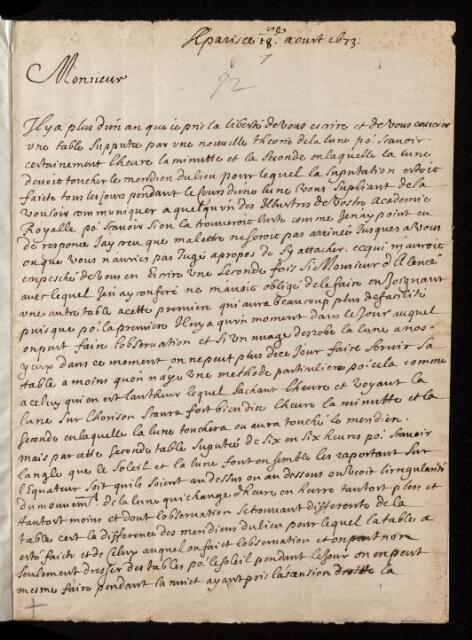 A paris ce 18e. aoust 1673.
92
Monsieur
Il y a plus d'un an que ie pris la liberté de vous escrire et de vous envoier
vne table supputée par vne nouvelle theorie de la lune po.r scauoir
certainement lheure la minutte et la seconde en laquelle la lune
deuoit toucher le meridien du lieu pour lequel la suputation estoit
faicte tous les jours pendant le cours dune lune vous supliant de la
vouloir communiquer a quelqu'vn des Illustres de vostre Academie
Royalle po.r scauoir si on la trouueroit juste comme Je nay point eu
de response Jay creu que ma lettre ne seroit pas arriuée Jusques a vous
ou que vous nauries pas Jugé apropos de sy attacher. ce qui mauroit
empesché de vous en Escrire vne seconde fois si Monsieur d'Alencé
auec lequel J'en ay conferé ne mauoit obligé de le faire en Joignant
vne autre table a cette premiere qui aura beaucoup plus de facilité
puis que po.r la premiere Il n'y a qu'vn moment dans le Jour auquel
on put faire lobseruation et si vn nuage desrobe la lune a nos
yeux dans ce moment on ne peut plus de ce Jour faire seruir sa
table a moins quon n'aye vne methode particuliere po.r cela comme
a celuy qui en est lautheur lequel sachant lheure et voyant la
lune sur lhorison scaura fort bien dire lheure la minutte et la
seconde en laquelle la lune touchera ou aura touché le meridien.
mais par cette seconde table suputée de six en six heures po.r scauoir
langle que le soleil et la lune font ensemble les raportant sur
l'Equateur soit quils soient au dessus ou au dessous on voit lirregularité
du mouuem.t de la lune qui change d'heure en heure tantost plus et
tantost moins et dont lobseruation se trouuant differente de la
table cest la difference des meridiens du lieu pour lequel la table a
esté faicte et de celuy auquel on faict lobseruation et on peut non
seulement dresser des tables po.r le soleil pendant le Jour on en peut
mesme faire pendant la nuict ayant pris lascension droitte la